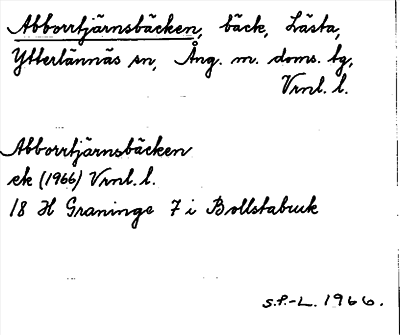 Abborrtjärnsbäcken, bäck, Lästa,
Ytterlännäs sn, Ång. m. doms. tg,
Vrnl. l.
Abborrtjärnsbäcken
ek (1966) Vrnl. l.
18 H Graninge 7 i Bollstabruk
S.P.-L. 1966.